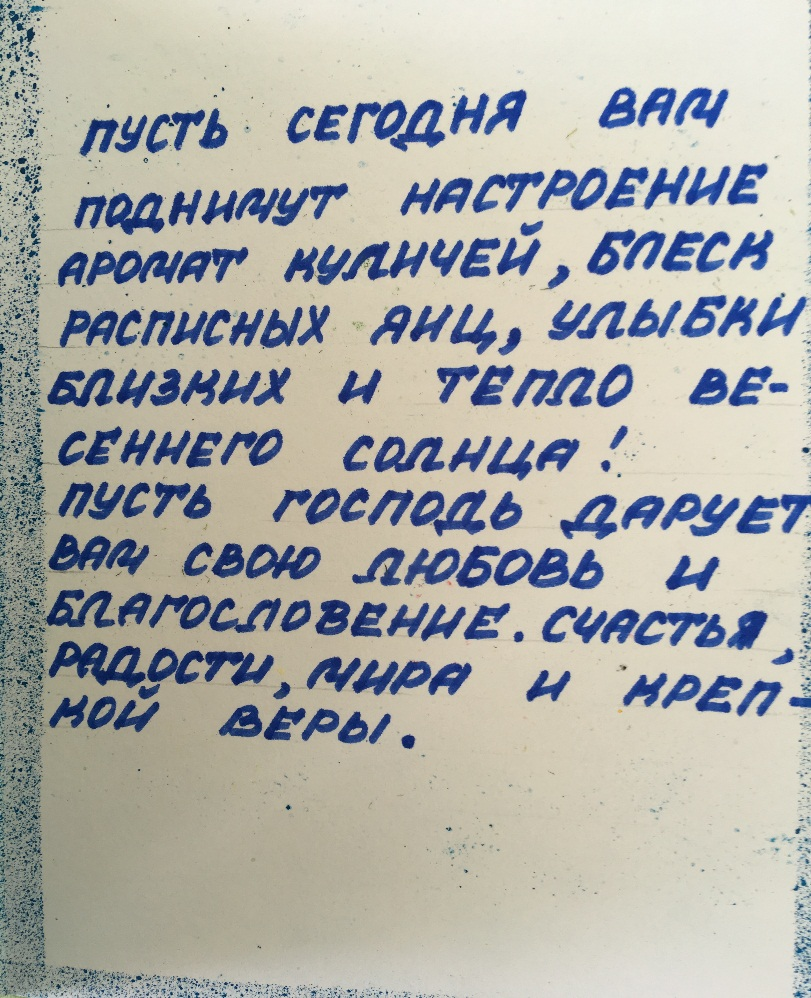 ПУСТЬ СЕГОДНЯ ВАМ
ПОДНИМУТ НАСТРОЕНИЕ
АРОМАТ КУЛИЧЕЙ, БЛЕСК
РАСПИСНЫХ ЯИЦ, УЛЫБКИ
БЛИЗКИХ И ТЕПЛО ВЕ-
СЕННЕГО СОЛНЦА!
ПУСТЬ ГОСПОДЬ ДАРУЕТ
ВАМ СВОЮ ЛЮБОВЬ И
БЛАГОСЛОВЕНИЕ. СЧАСТЬЯ,
РАДОСТИ, МИРА И КРЕП-
КОЙ ВЕРЫ.